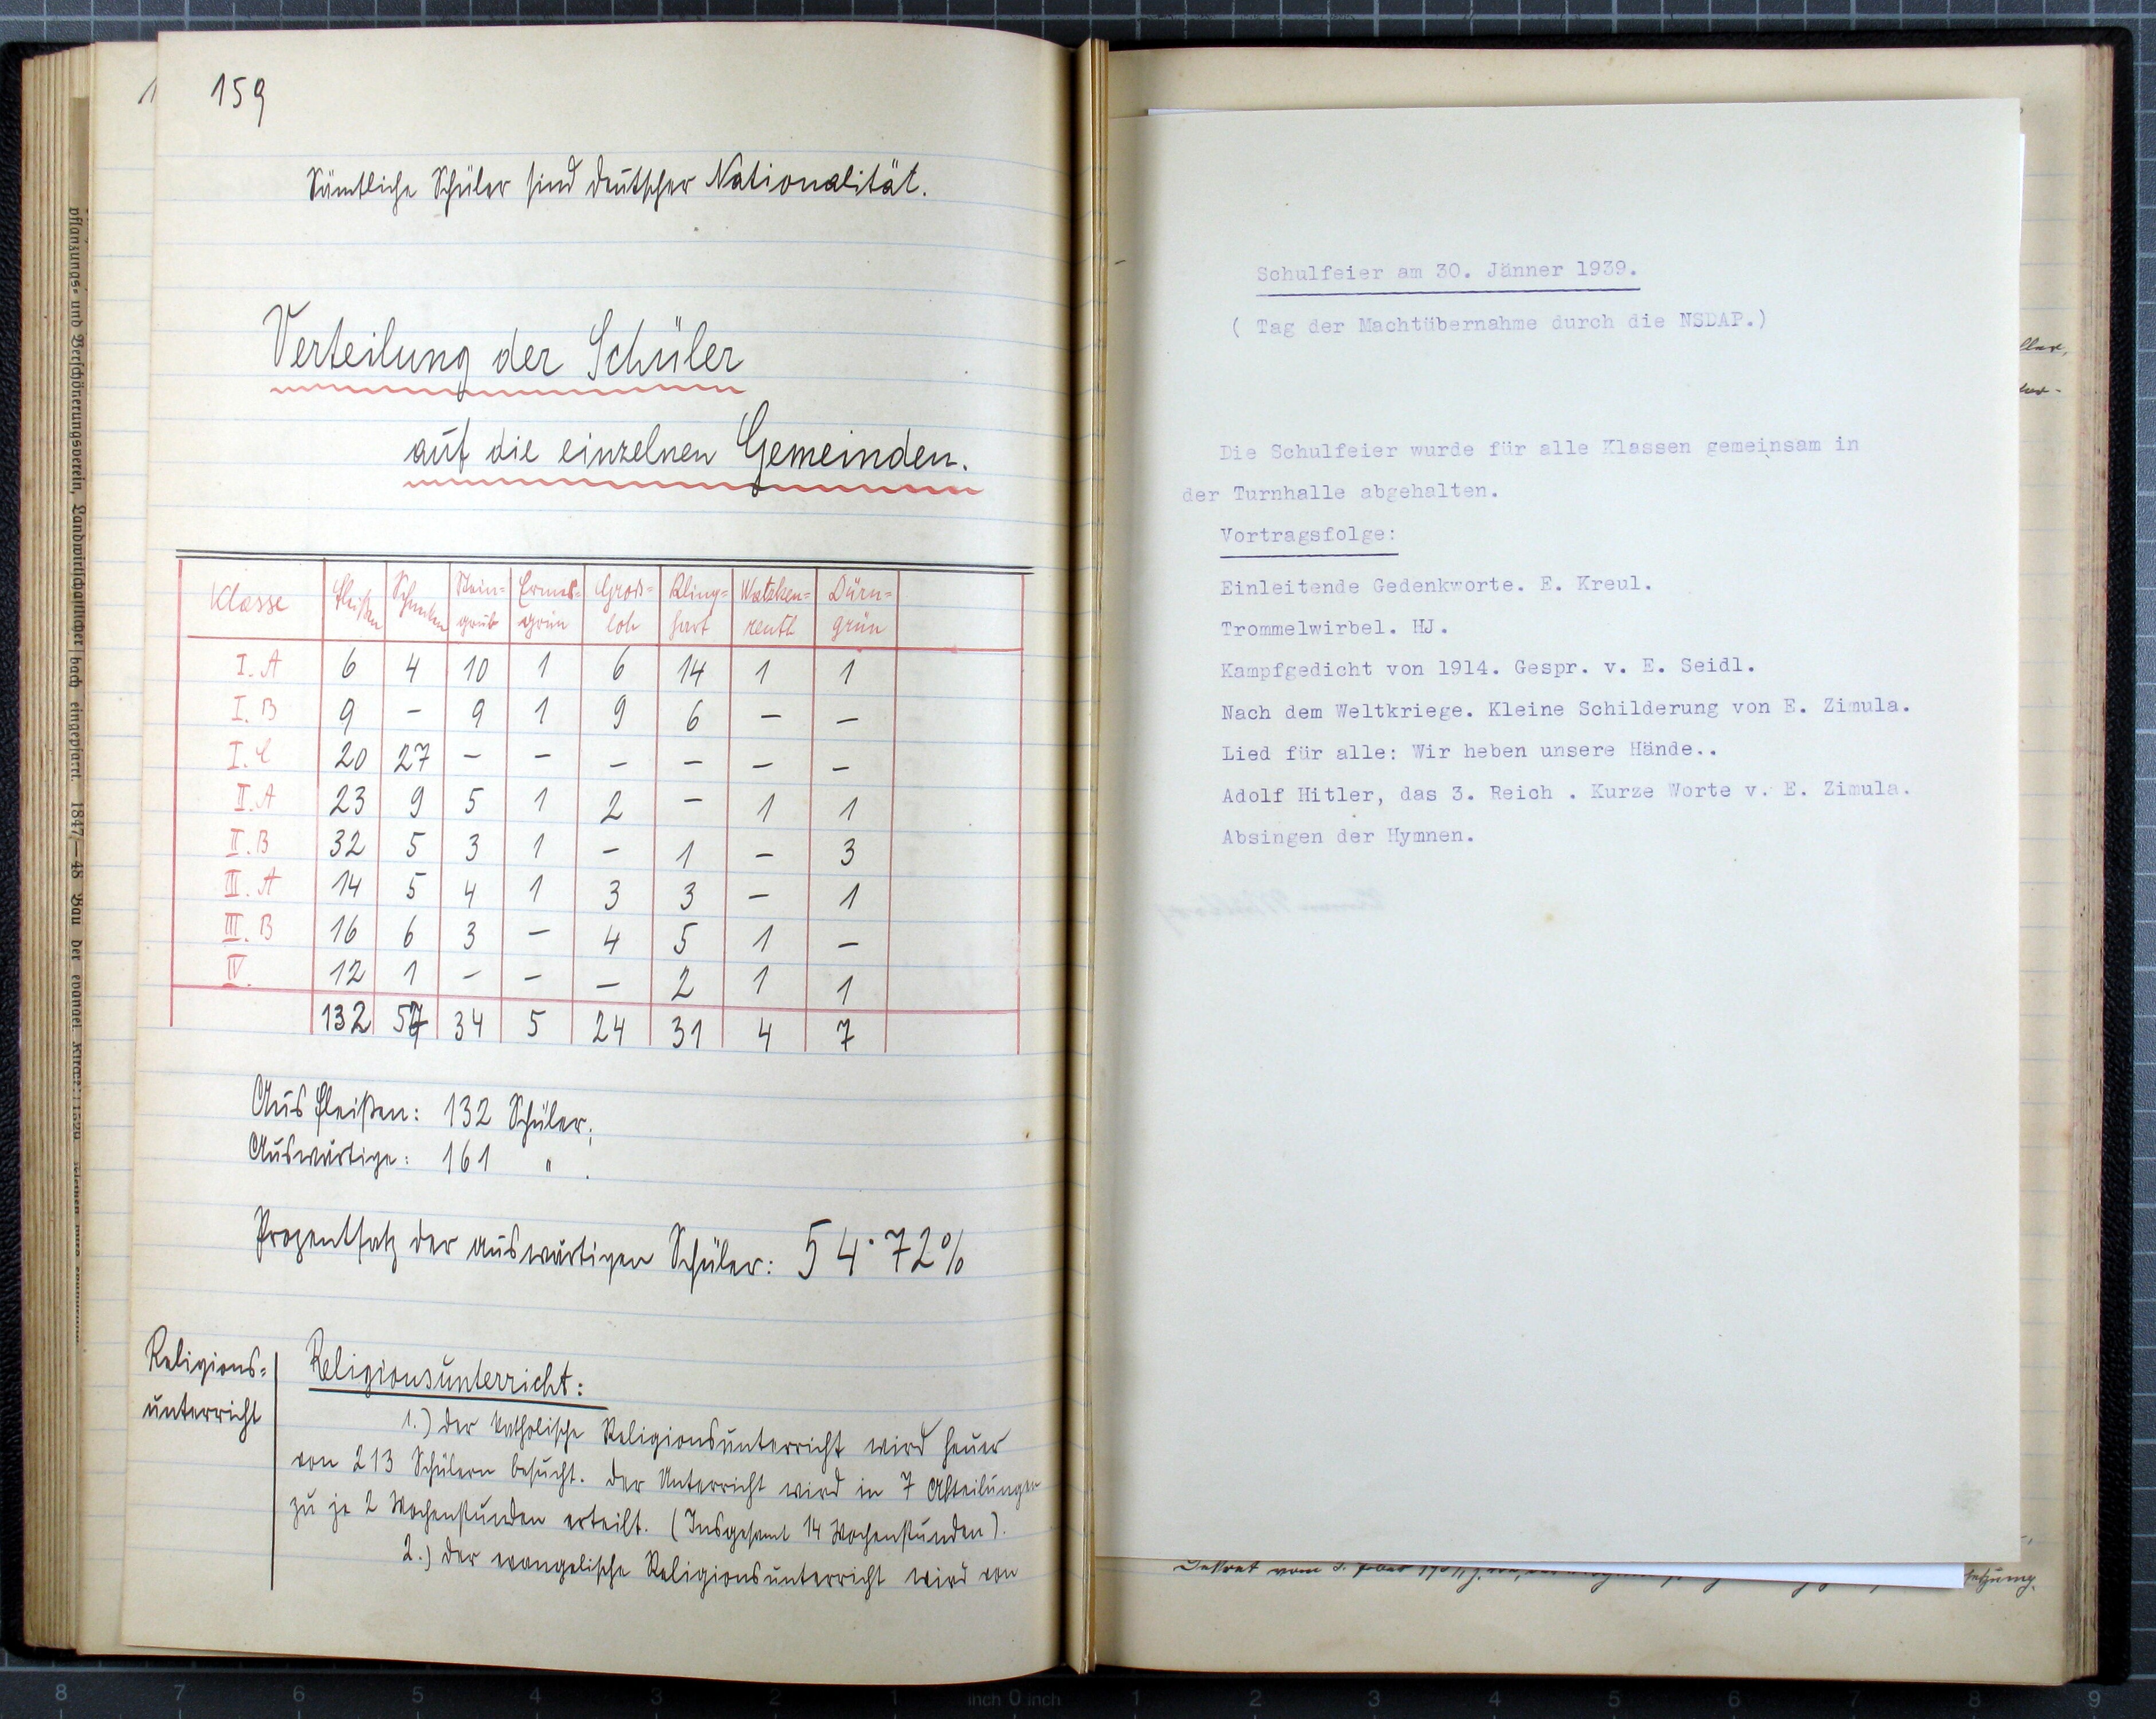 159
Sämtliche Schüler sind deutscher Nationalität.
Verteilung der Schüler
auf die einzelnen Gemeinden.
Klasse Fleißen Schnecken Stein= grub Ermes= grün Groß= loh Kling= hart Watzken= reuth Dürn= grün
I. A 6 4 10 1 6 14 1 1
I. B 9 – 9 1 9 6 – –
I. C 20 27 – – – – – –
II. A 23 9 5 1 2 – 1 1
II. B 32 5 3 1 – 1 – 3
III. A 14 5 4 1 3 3 – 1
III. B 16 6 3 – 4 5 1 –
IV. 12 1 – – – 2 1 1
132 57 34 5 24 31 4 7
Aus Fleißen: 132 Schüler;
Auswärtige: 161 " .
Prozentsatz der auswärtigen Schüler: 54·72%
Religions=
unterricht
Religionsunterricht:
1.) Der katholische Religionsunterricht wird heuer
von 213 Schülern besucht. Der Unterricht wird in 7 Abteilungen
zu je 2 Wochenstunden erteilt. (Insgesamt 14 Wochenstunden).
2.) Der evangelische Religionsunterricht wird von
Schulfeier am 30. Jänner 1939.
( Tag der Machtübernahme durch die NSDAP.)
Die Schulfeier wurde für alle Klassen gemeinsam in
der Turnhalle abgehalten.
Vortragsfolge:
Einleitende Gedenkworte. E. Kreul.
Trommelwirbel. HJ.
Kampfgedicht von 1914. Gespr. v. E. Seidl.
Nach dem Weltkriege. Kleine Schilderung von E. Zimula.
Lied für alle: Wir heben unsere Hände..
Adolf Hitler, das 3. Reich . Kurze Worte v. E. Zimula.
Absingen der Hymnen.
Dekret vom
pflanzungs- und Verschönerungsverein, Landwirtschaftlicher
bach eingepfarrt. 1847—48 Bau der evangel.
8 7 6 5 4 3 2 1 inch 0 inch 1 2 3 4 5 6 7 8 9